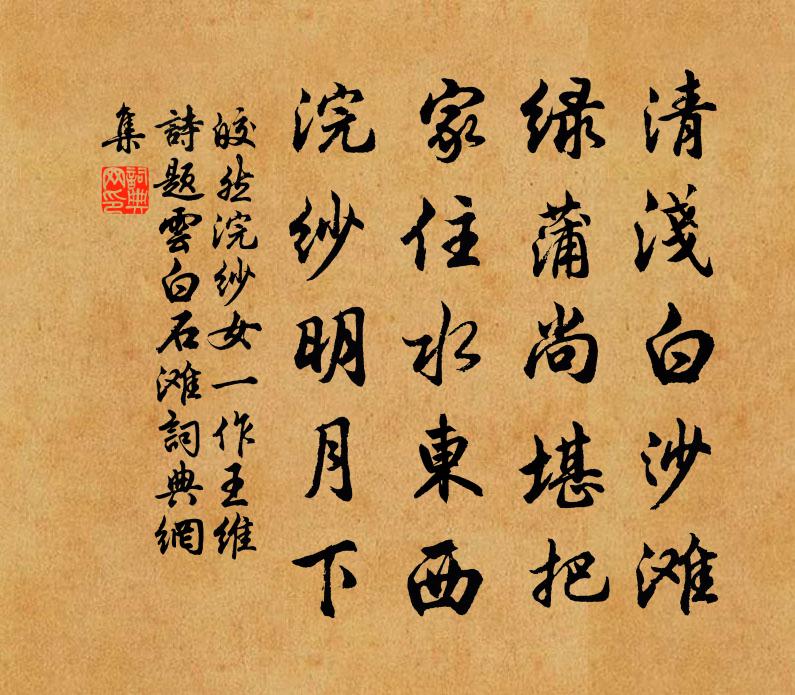 清淺白沙滩
绿蒲尚堪把
家住水東西
浣纱明月下
皎然浣纱女一作王維
詩题雲白石滩詞典網
集
詞典网印